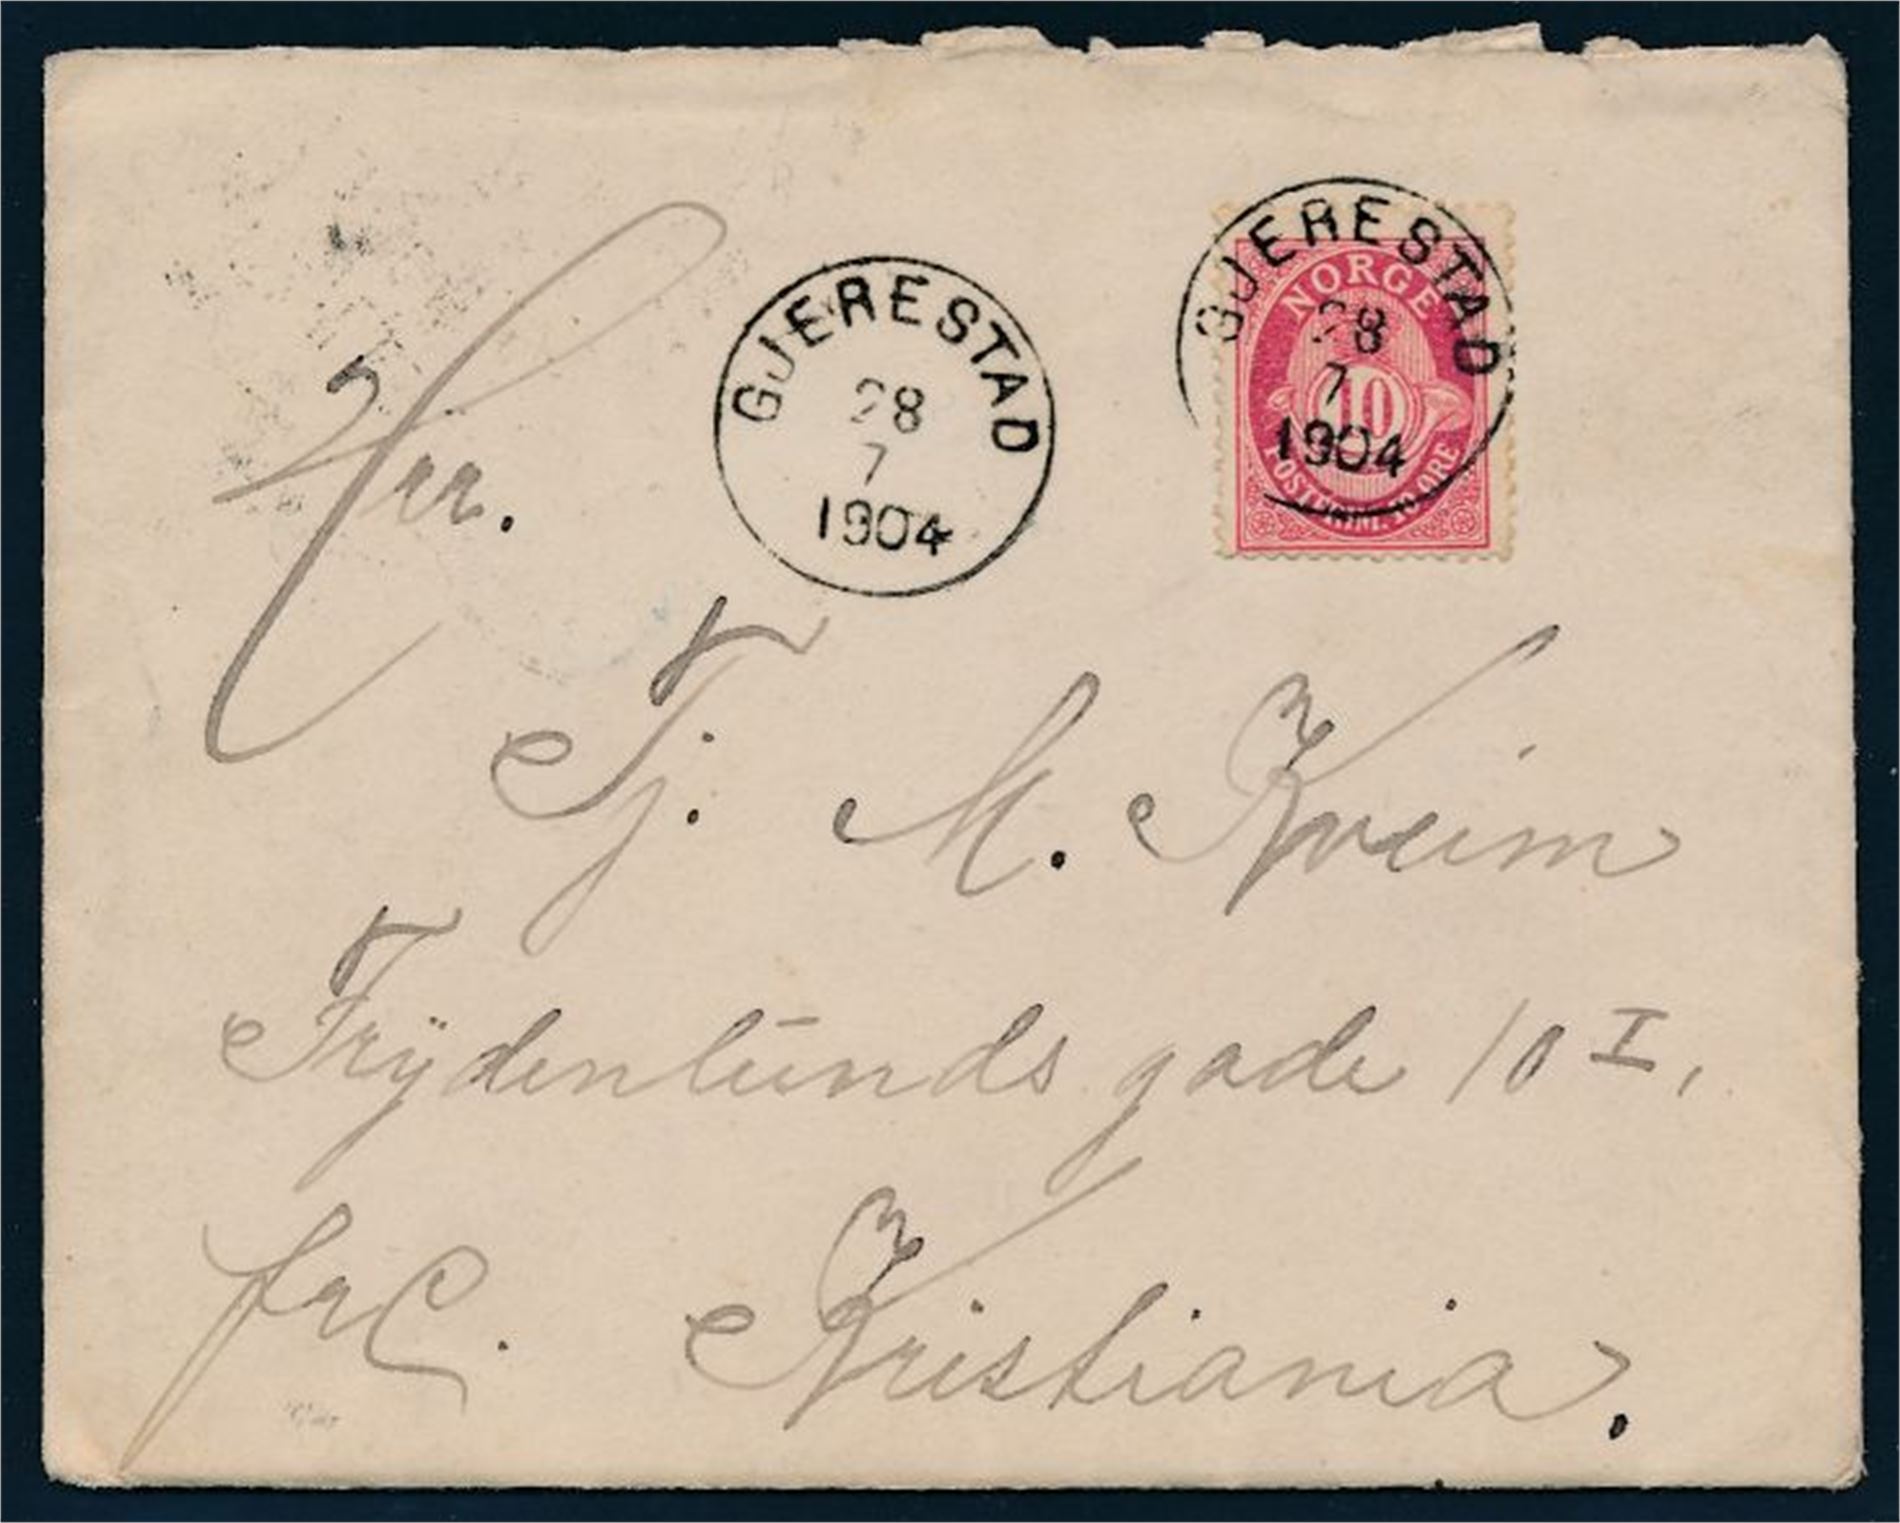 GJERESTAD
28
7
1904
GJERESTAD
28
7
1904
NORGE
10
POSTFRIM. 10 ØRE
Hrr.
Tj. M. Kveim
Frydenlunds gade 10 I,
frC. Kristiania.